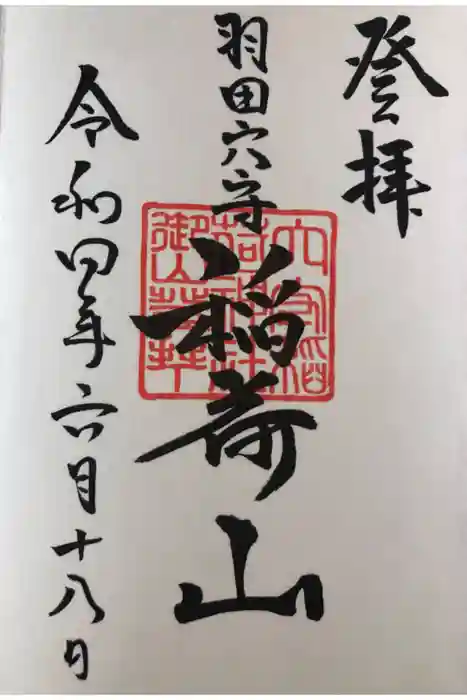 登拝
羽田穴守
稲荷山
穴守稲
荷神社
御山登拝
令和四年六月十八日